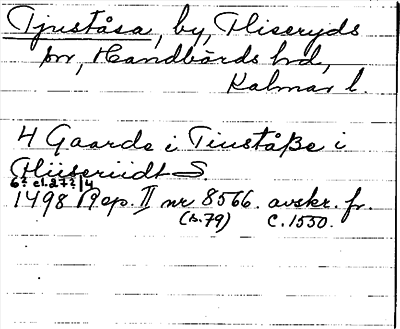 Tjuståsa, by, Fliseryds
sn, Handbörds hd,
Kalmar l.
4 Gaarde i Tiuståsse i
Fliiseriidt S.
6? cl. 27? / 4
1498 Rep. II nr 8566. avskr. fr.
(s. 79) c. 1550.